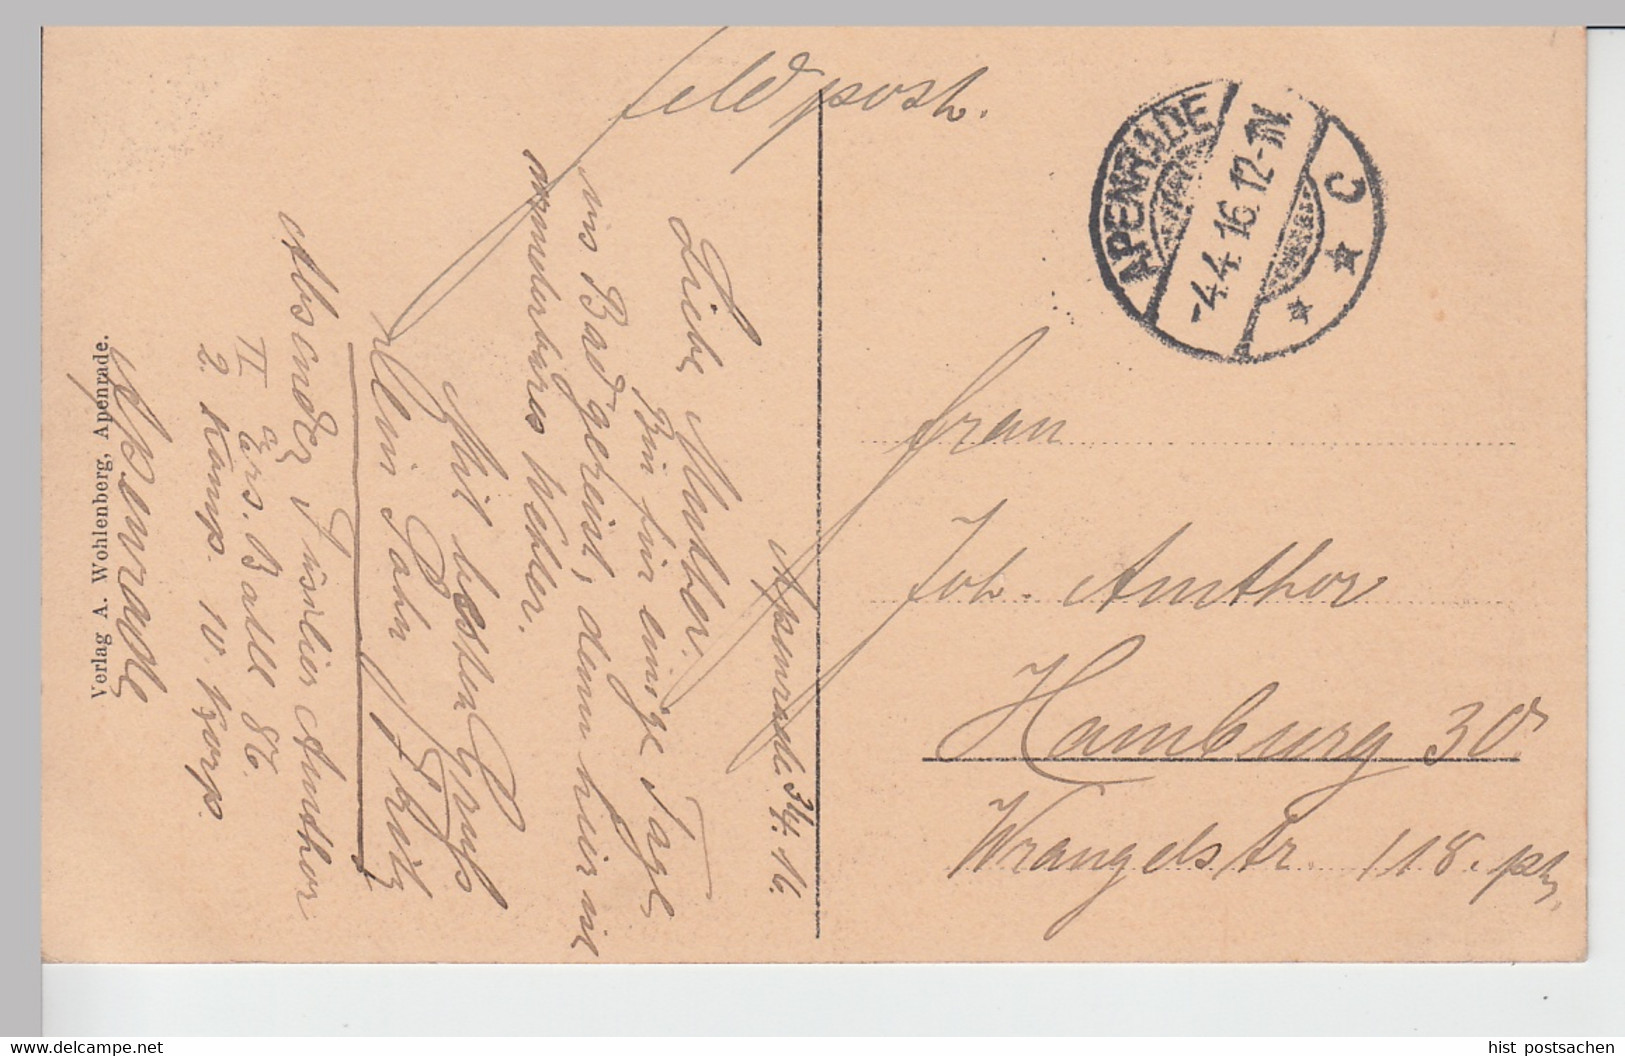 Feldpost.
APENRADE
-4.4.16.12-1N.
* * C
Apenrade 3/4.16.
Liebe Mutter.
Bin für einige Tage
ins Bad gereist, denn hier ist
wunderbares Wetter.
Mit besten Gruß
Dein Sohn Fritz
Absender Amthor
II Ers. Batl 86.
2. Komp. IV. Korp.
Apenrade
Verlag A. Wohlenberg, Apenrade.
Frau
Joh. Amthor
Hamburg 30
Wrangelstr. 118. pt,
hist postsachen
www.delcampe.net